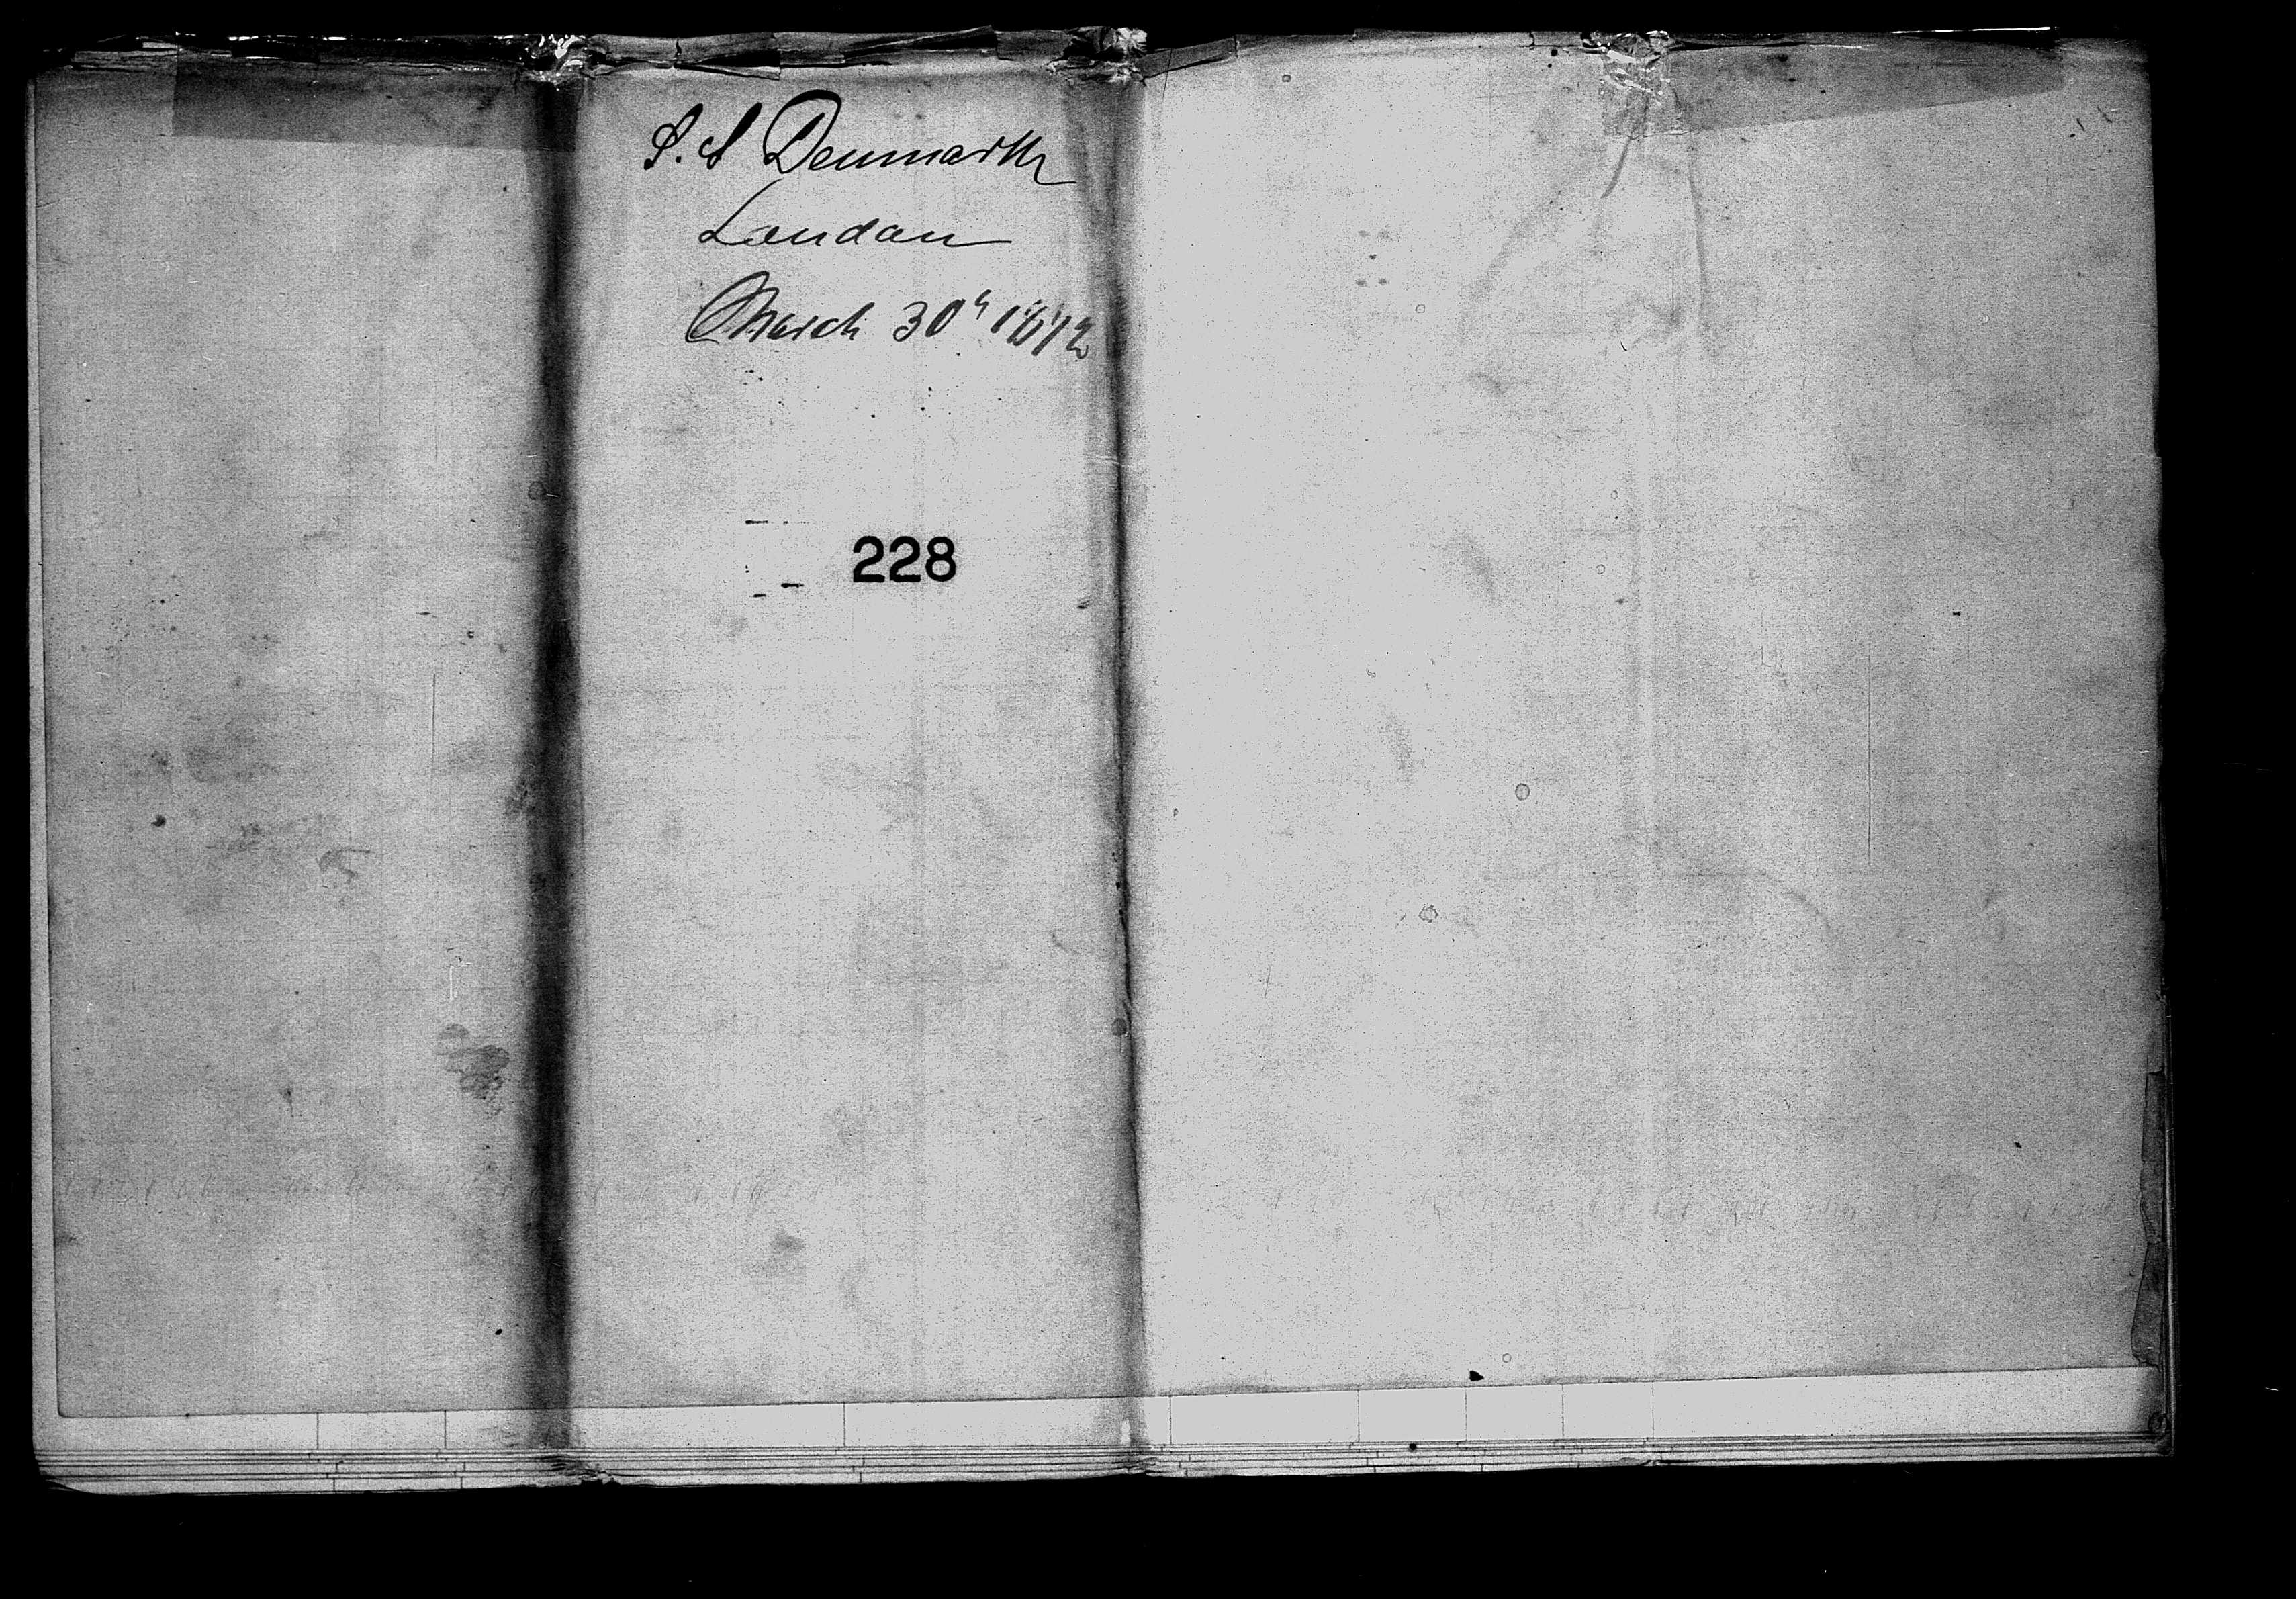 S.S Denmark
London
March 30th 1872
228